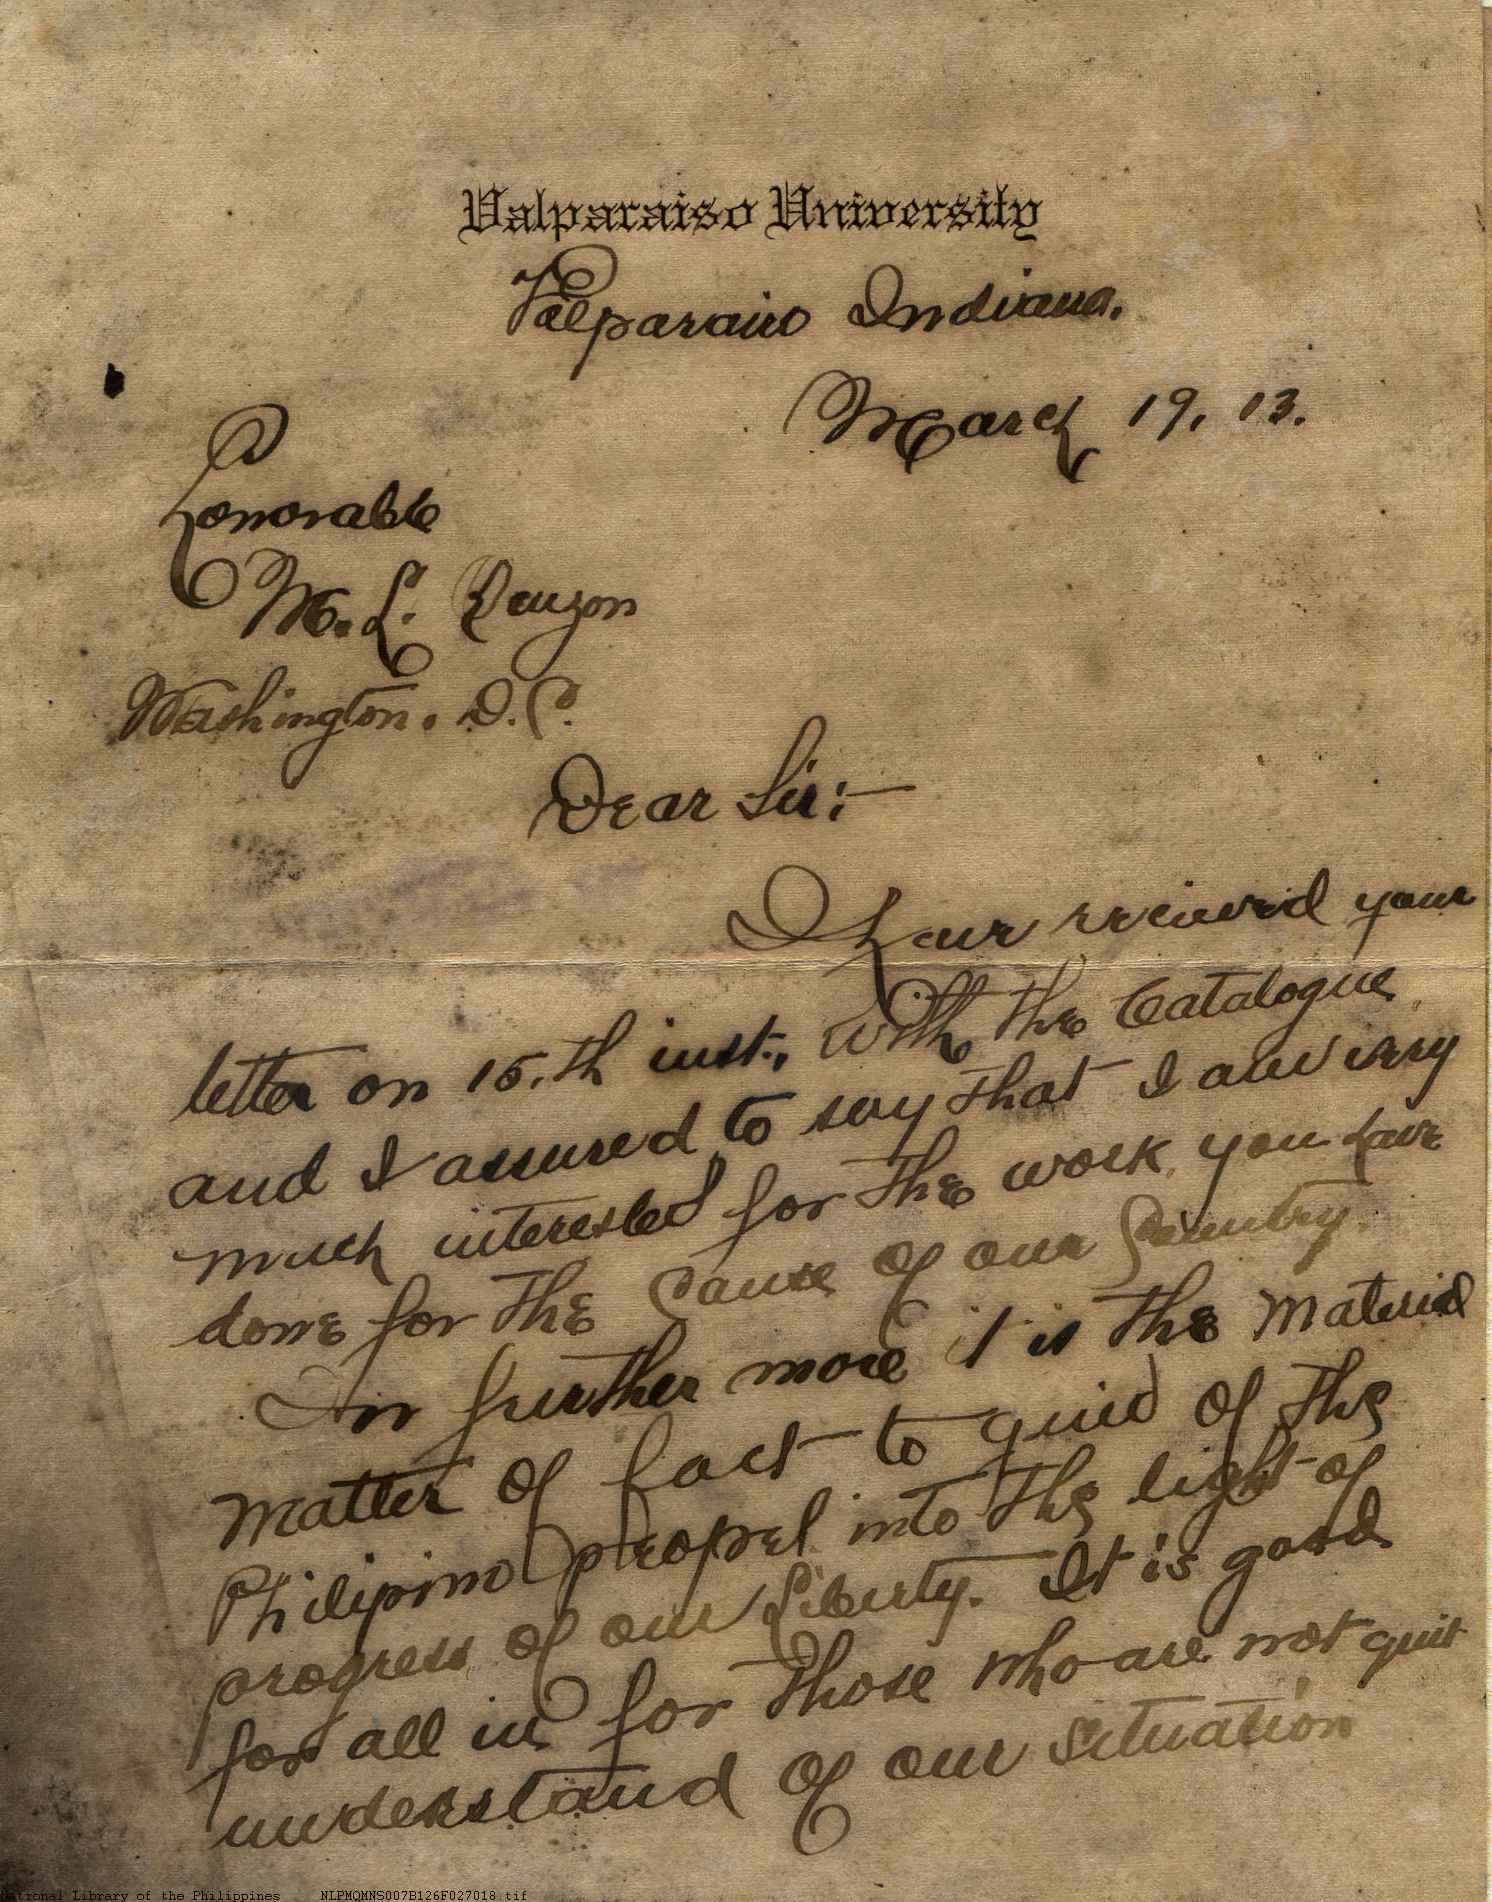 Valparaiso University
Valparaiso Indiana.
March 19, 13.
Honorable
M. L. Quezon
Washington. D. C.
Dear Sir:—
I have received your
letter on 15.th inst., with the Catalogue
and I assured to say that I am very
much interested for the work you have
done for the Cause of our Country.
In further more it is the material
matter of fact to guid of the
Philipino peopel into the light of
progress of our Liberty. It is good
for all in for those who are not quit
understand of our situation
National Library of the Philippines NLPMQMNS007B126F027018.tif